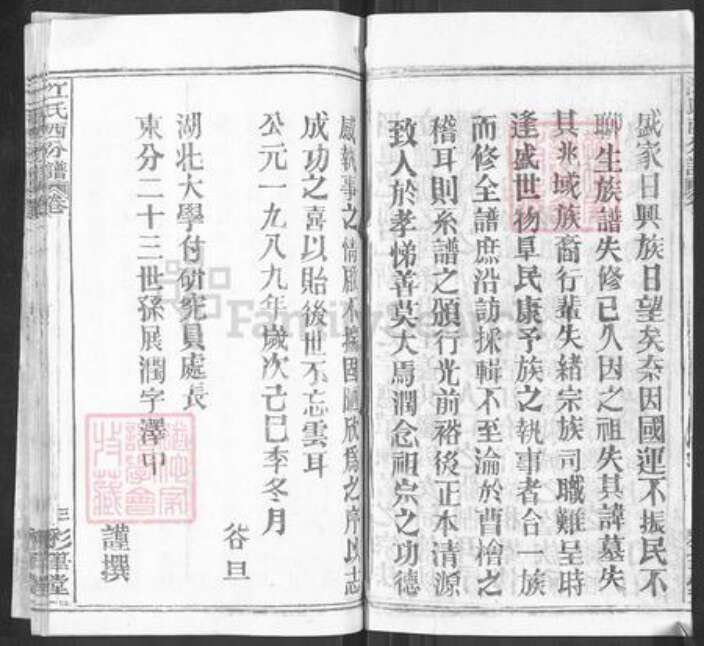 盛家日興族日望矣奈因國運不振民不
聊生族譜失修已久因之祖失其諱墓失
其兆域族裔行輩失緒宗族司職難呈時
逢盛世物阜民康予族之執事者合一族
而修全譜庶沿訪採輯不至淪於曹檜之
稽耳則系譜之頒行光前裕後正本清源
致人於孝悌善莫大焉潤念祖宗之功德
感執事之情殷不揣固陋欣為之序以志
成功之喜以貽後世不忘雲耳
公元一九八九年歲次己巳季冬月
穀旦
湖北大學付研究員處長
東分二十三世孫展潤字澤中
謹撰
江氏西分譜
卷
三
彩筆堂
FamilySearch